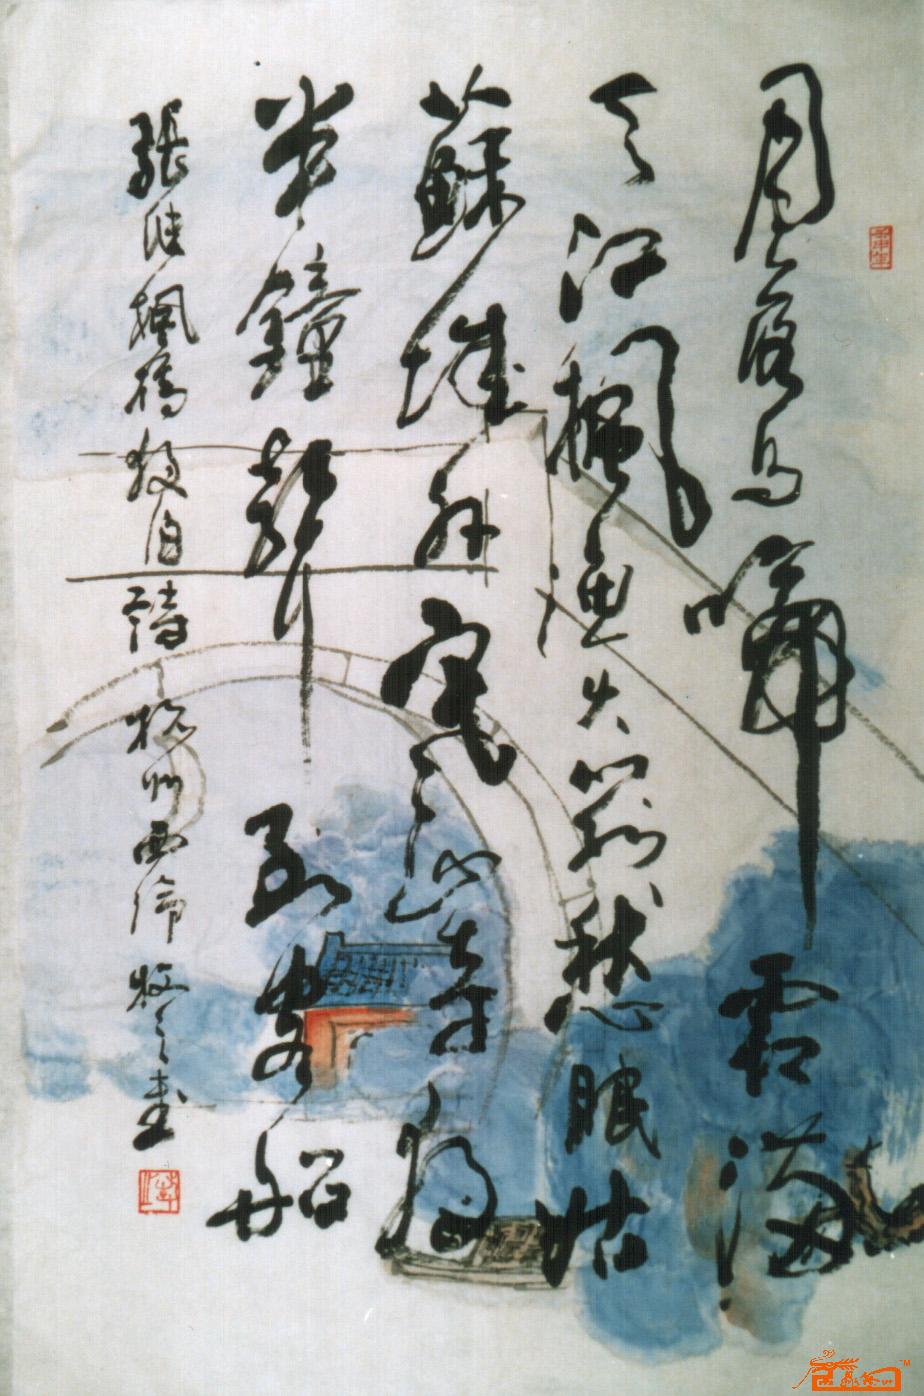 月落烏啼霜滿
天江楓漁火對愁眠姑
蘇城外寒山寺夜
半鐘聲到客船
張継楓橋夜泊詩 杭州西泠 書